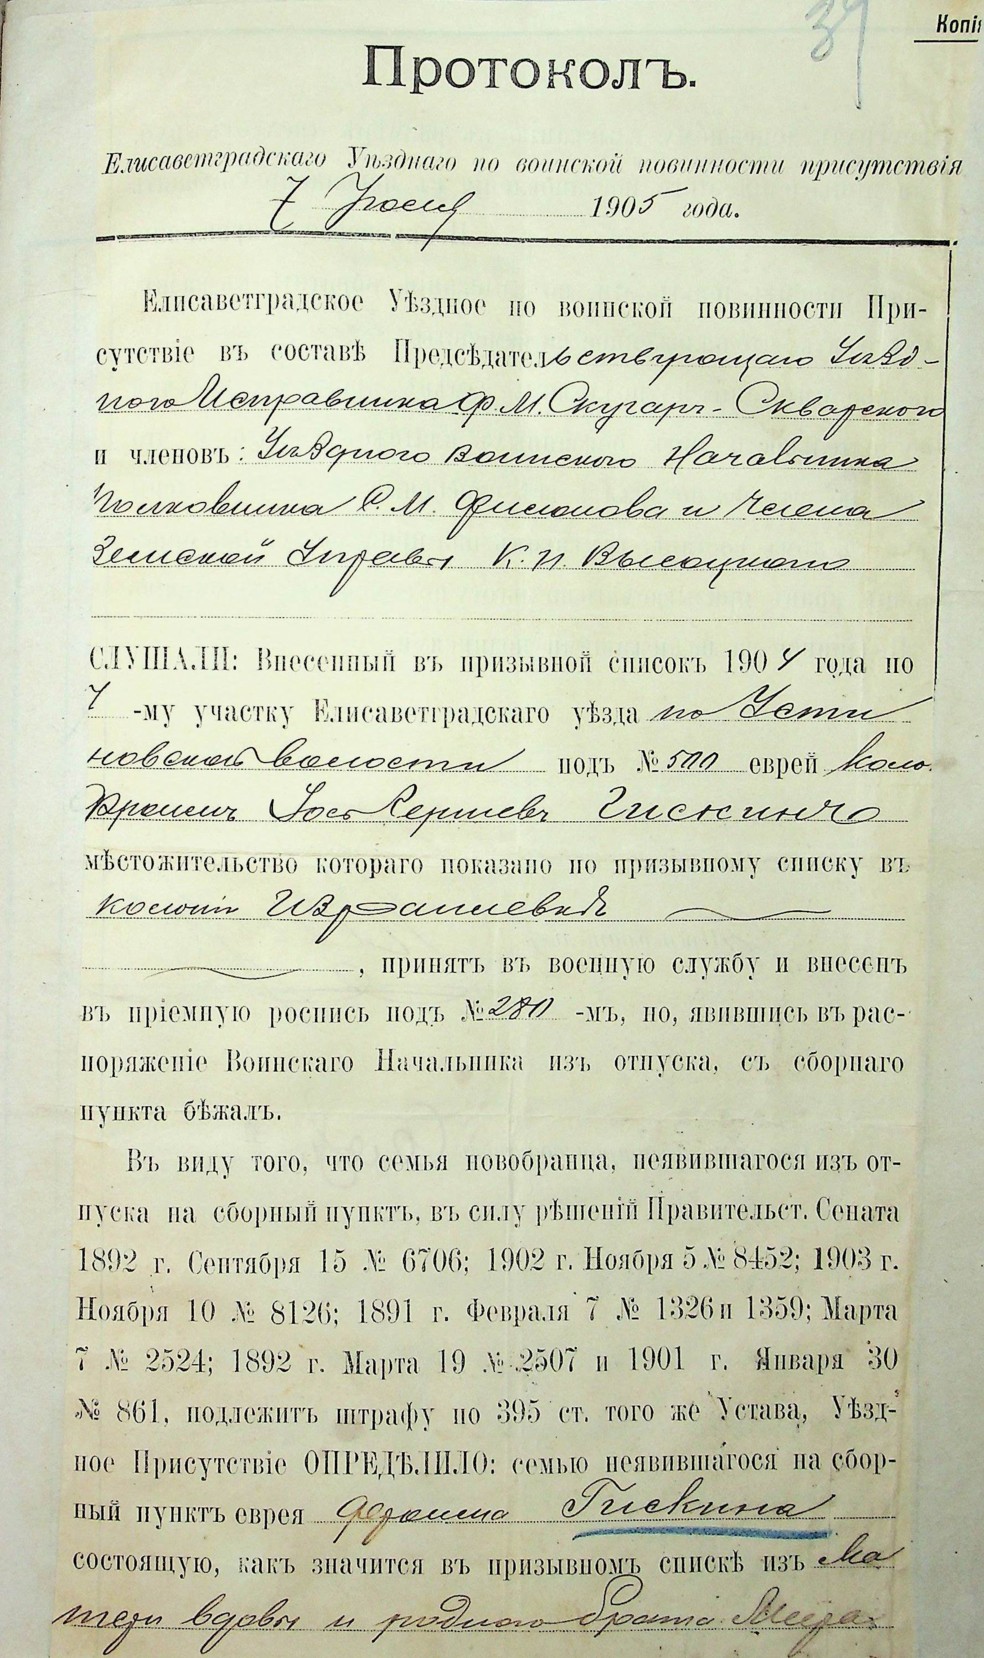 39
Копія
Протоколъ.
Елисаветградскаго Уѣзднаго по воинской повинности присутствія
7 Іюля 1905 года.
Елисаветградское Уѣздное по воинской повинности При-
сутствіе въ составѣ Предсѣдательствующаго Уѣзд-
ного Исправника Ф. М. Скугаръ-Скварского
и членовъ: Уѣздного Воинского Начальника
Полковника С. М. и Члена
Земской Управы К. П. Высоцкого
СЛУШАЛИ: Внесенный въ призывной списокъ 1904 года по
7 -му участку Елисаветградскаго уѣзда по Усти
новской волости подъ № 500 еврей
Гискинъ
мѣстожительство котораго показано по призывному списку въ
колоніи Израилевкѣ
, принятъ въ военную службу и внесенъ
въ пріемную роспись подъ № 280 -мъ, но, явившись въ рас-
поряженіе Воинскаго Начальника изъ отпуска, съ сборнаго
пункта бѣжалъ.
Въ виду того, что семья новобранца, неявившагося изъ от-
пуска на сборный пунктъ, въ силу рѣшеній Правительст. Сената
1892 г. Сентября 15 № 6706; 1902 г. Ноября 5 № 8452; 1903 г.
Ноября 10 № 8126; 1891 г. Февраля 7 № 1326 и 1359; Марта
7 № 2524; 1892 г. Марта 19 № 2507 и 1901 г. Января 30
№ 861, подлежитъ штрафу по 395 ст. того же Устава, Уѣзд-
ное Присутствіе ОПРЕДѢЛИЛО: семью неявившагося на сбор-
ный пунктъ еврея Гискина
состоящую, какъ значится въ призывномъ спискѣ изъ Ма
тери вдовы и родного брата